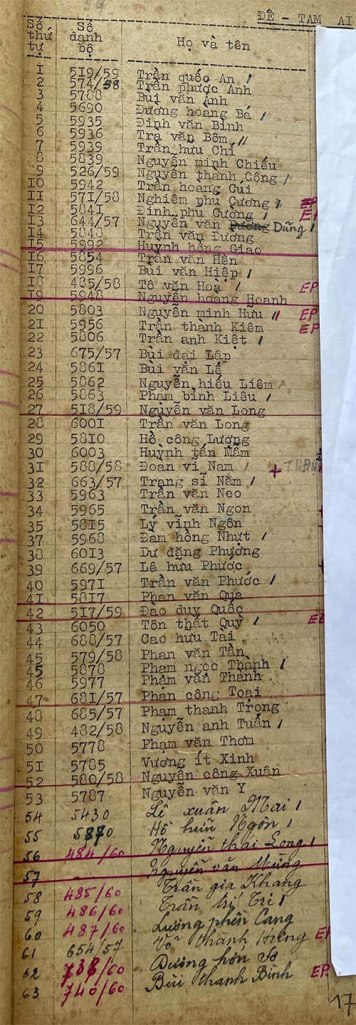 ĐỆ - TAM AI
Số thứ tự Số danh bộ Họ và tên
1 519/59 Trần quốc An
2 574/58 Trần phước Anh
3 5788 Bùi văn Ảnh
4 5690 Dương hoàng Bá
5 5935 Đinh văn Bình
6 5936 Tra văn Bôm
7 5939 Trần hưu Chí
8 5839 Nguyễn minh Chiếu
9 526/59 Nguyễn thanh Công
10 5942 Trần hoang Cui
11 571/58 Nghiêm phu Cương
12 5841 Đinh phu Cường
13 644/57 Nguyễn văn Dũng
14 5848 Trần văn Đương
15 5992 Huỳnh hồng Giao
16 5854 Trần văn Hên
17 5996 Bùi văn Hiệp
18 485/58 Tô văn Hoa EP
19 5948 Nguyễn hoang Hoanh
20 5803 Nguyễn minh Hưu EP
21 5956 Trần thành Kiêm EP
22 5806 Trần anh Kiệt
23 675/57 Bùi đại Lập
24 5861 Bùi văn Lê
25 5862 Nguyễn hiếu Liêm
26 5863 Phạm bỉnh Liêu
27 518/59 Nguyễn văn Long
28 6001 Trần văn Long
29 5810 Hồ công Lượng
30 6003 Huỳnh tấn Năm
31 588/58 Đoan vi Nam
32 663/57 Trang sĩ Năm
33 5963 Trần văn Neo
34 5965 Trần văn Ngon
35 5815 Lý vĩnh Ngôn
37 5968 Đam hồng Nhựt
38 6013 Dư đăng Phương
39 669/57 Lê hưu Phước
40 5971 Trần văn Phước
41 5817 Phan văn Qua
42 517/59 Đào duy Quốc
43 6050 Tôn thất Quý
44 688/57 Cao hưu Tai
45 579/58 Phan văn Tân
45 5878 Phạm ngọc Thạnh
46 5977 Phạm văn Thanh
47 681/57 Phan công Toai
48 685/57 Phạm thanh Trọng
49 482/58 Nguyễn anh Tuấn
50 5778 Phạm văn Thơm
51 5785 Vương ít Xinh
52 580/58 Nguyễn công Xuân
53 5787 Nguyễn văn Y
54 5430 Lê xuân Mai
55 5870 Hồ huin Ngôn
56 484/60 Nguyễn thái Long
57 Nguyễn văn Mừng
58 485/60 Trần gia Khang
59 486/60 Trần Trí
60 487/60 Lương phên Cang
61 654/57 Võ thanh Hưng
62 738/60 Dương hớn
63 740/60 Bùi thanh Bình EP
17